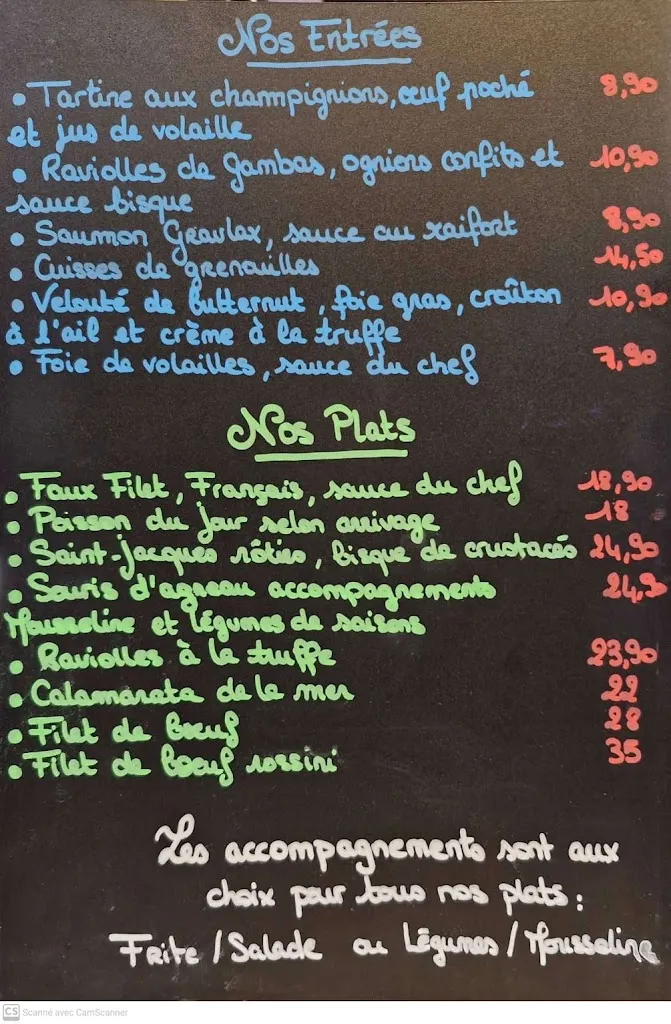 Nos Entrées
• Tartine aux champignions, œuf poché 8,90
et jus de volaille
• Raviolles de gambas, ognions confits et 10,90
sauce bisque
• Saumon Gravlax, sauce au raifort 8,90
• Cuisses de grenouilles 14,50
• Velouté de butternut, foie gras, croûton 10,90
à l'ail et crème à la truffe
• Foie de volailles, sauce du chef 7,90
Nos Plats
• Faux Filet, Français, sauce du chef 18,90
• Poisson du jour selon arrivage 18
• Saint-Jacques rôties, bisque de crustacés 24,90
• Souris d'agneau accompagnements 24,90
Mousseline et légumes de saisons
• Raviolles à la truffe 23,90
• Calamarata de la mer 22
• Filet de bœuf 28
• Filet de bœuf rossini 35
Les accompagnements sont aux
choix pour tous nos plats :
Frite / Salade ou Légumes / Mousseline
CS Scanné avec CamScanner